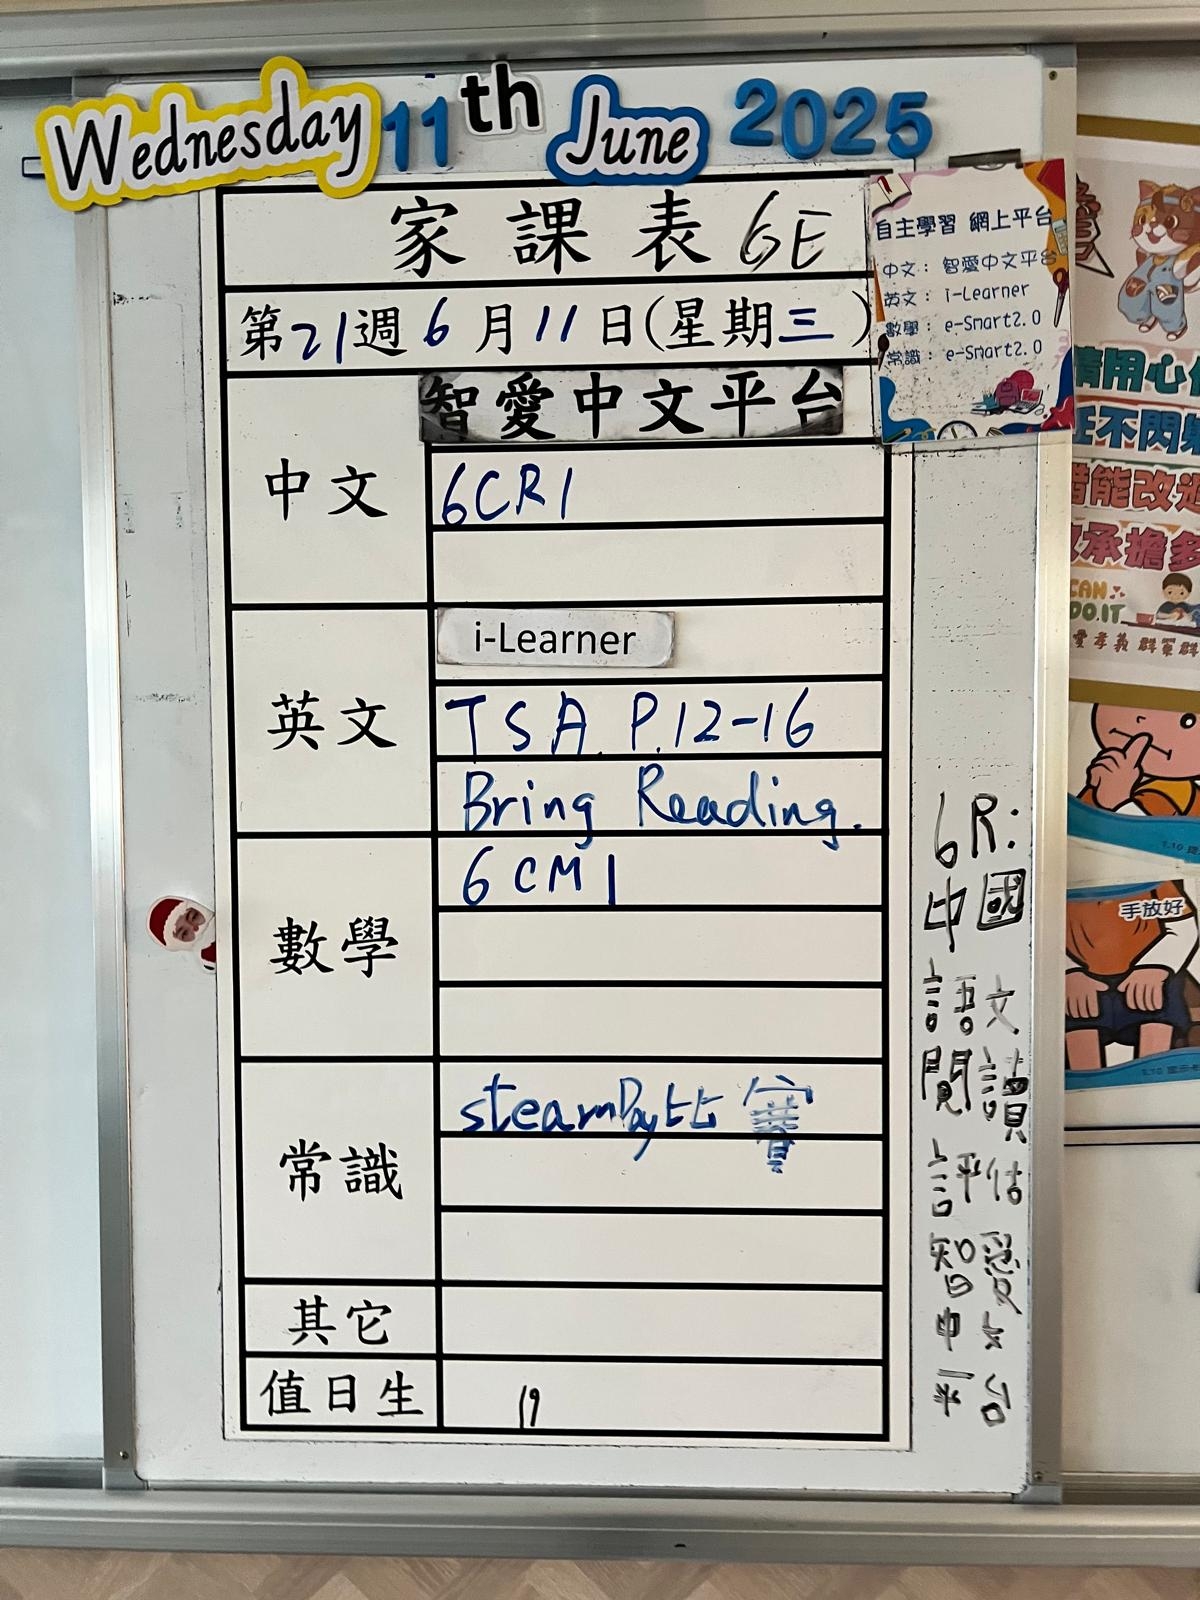 Wednesday 11th June 2025
家課表 6E
第21週6月11日(星期三)
自主學習 網上平台
中文：智愛中文平台
英文：i-Learner
數學：e-Smart2.0
常識：e-Smart2.0
中文
智愛中文平台
6CR1
英文
i-Learner
TSA P.12-16
Bring Reading.
數學
6CM1
常識
steamDay比賽
其它
值日生
19
6R:
中國
語文
閱讀
評估
智愛
中文
平台
CAN
DO.IT
手放好